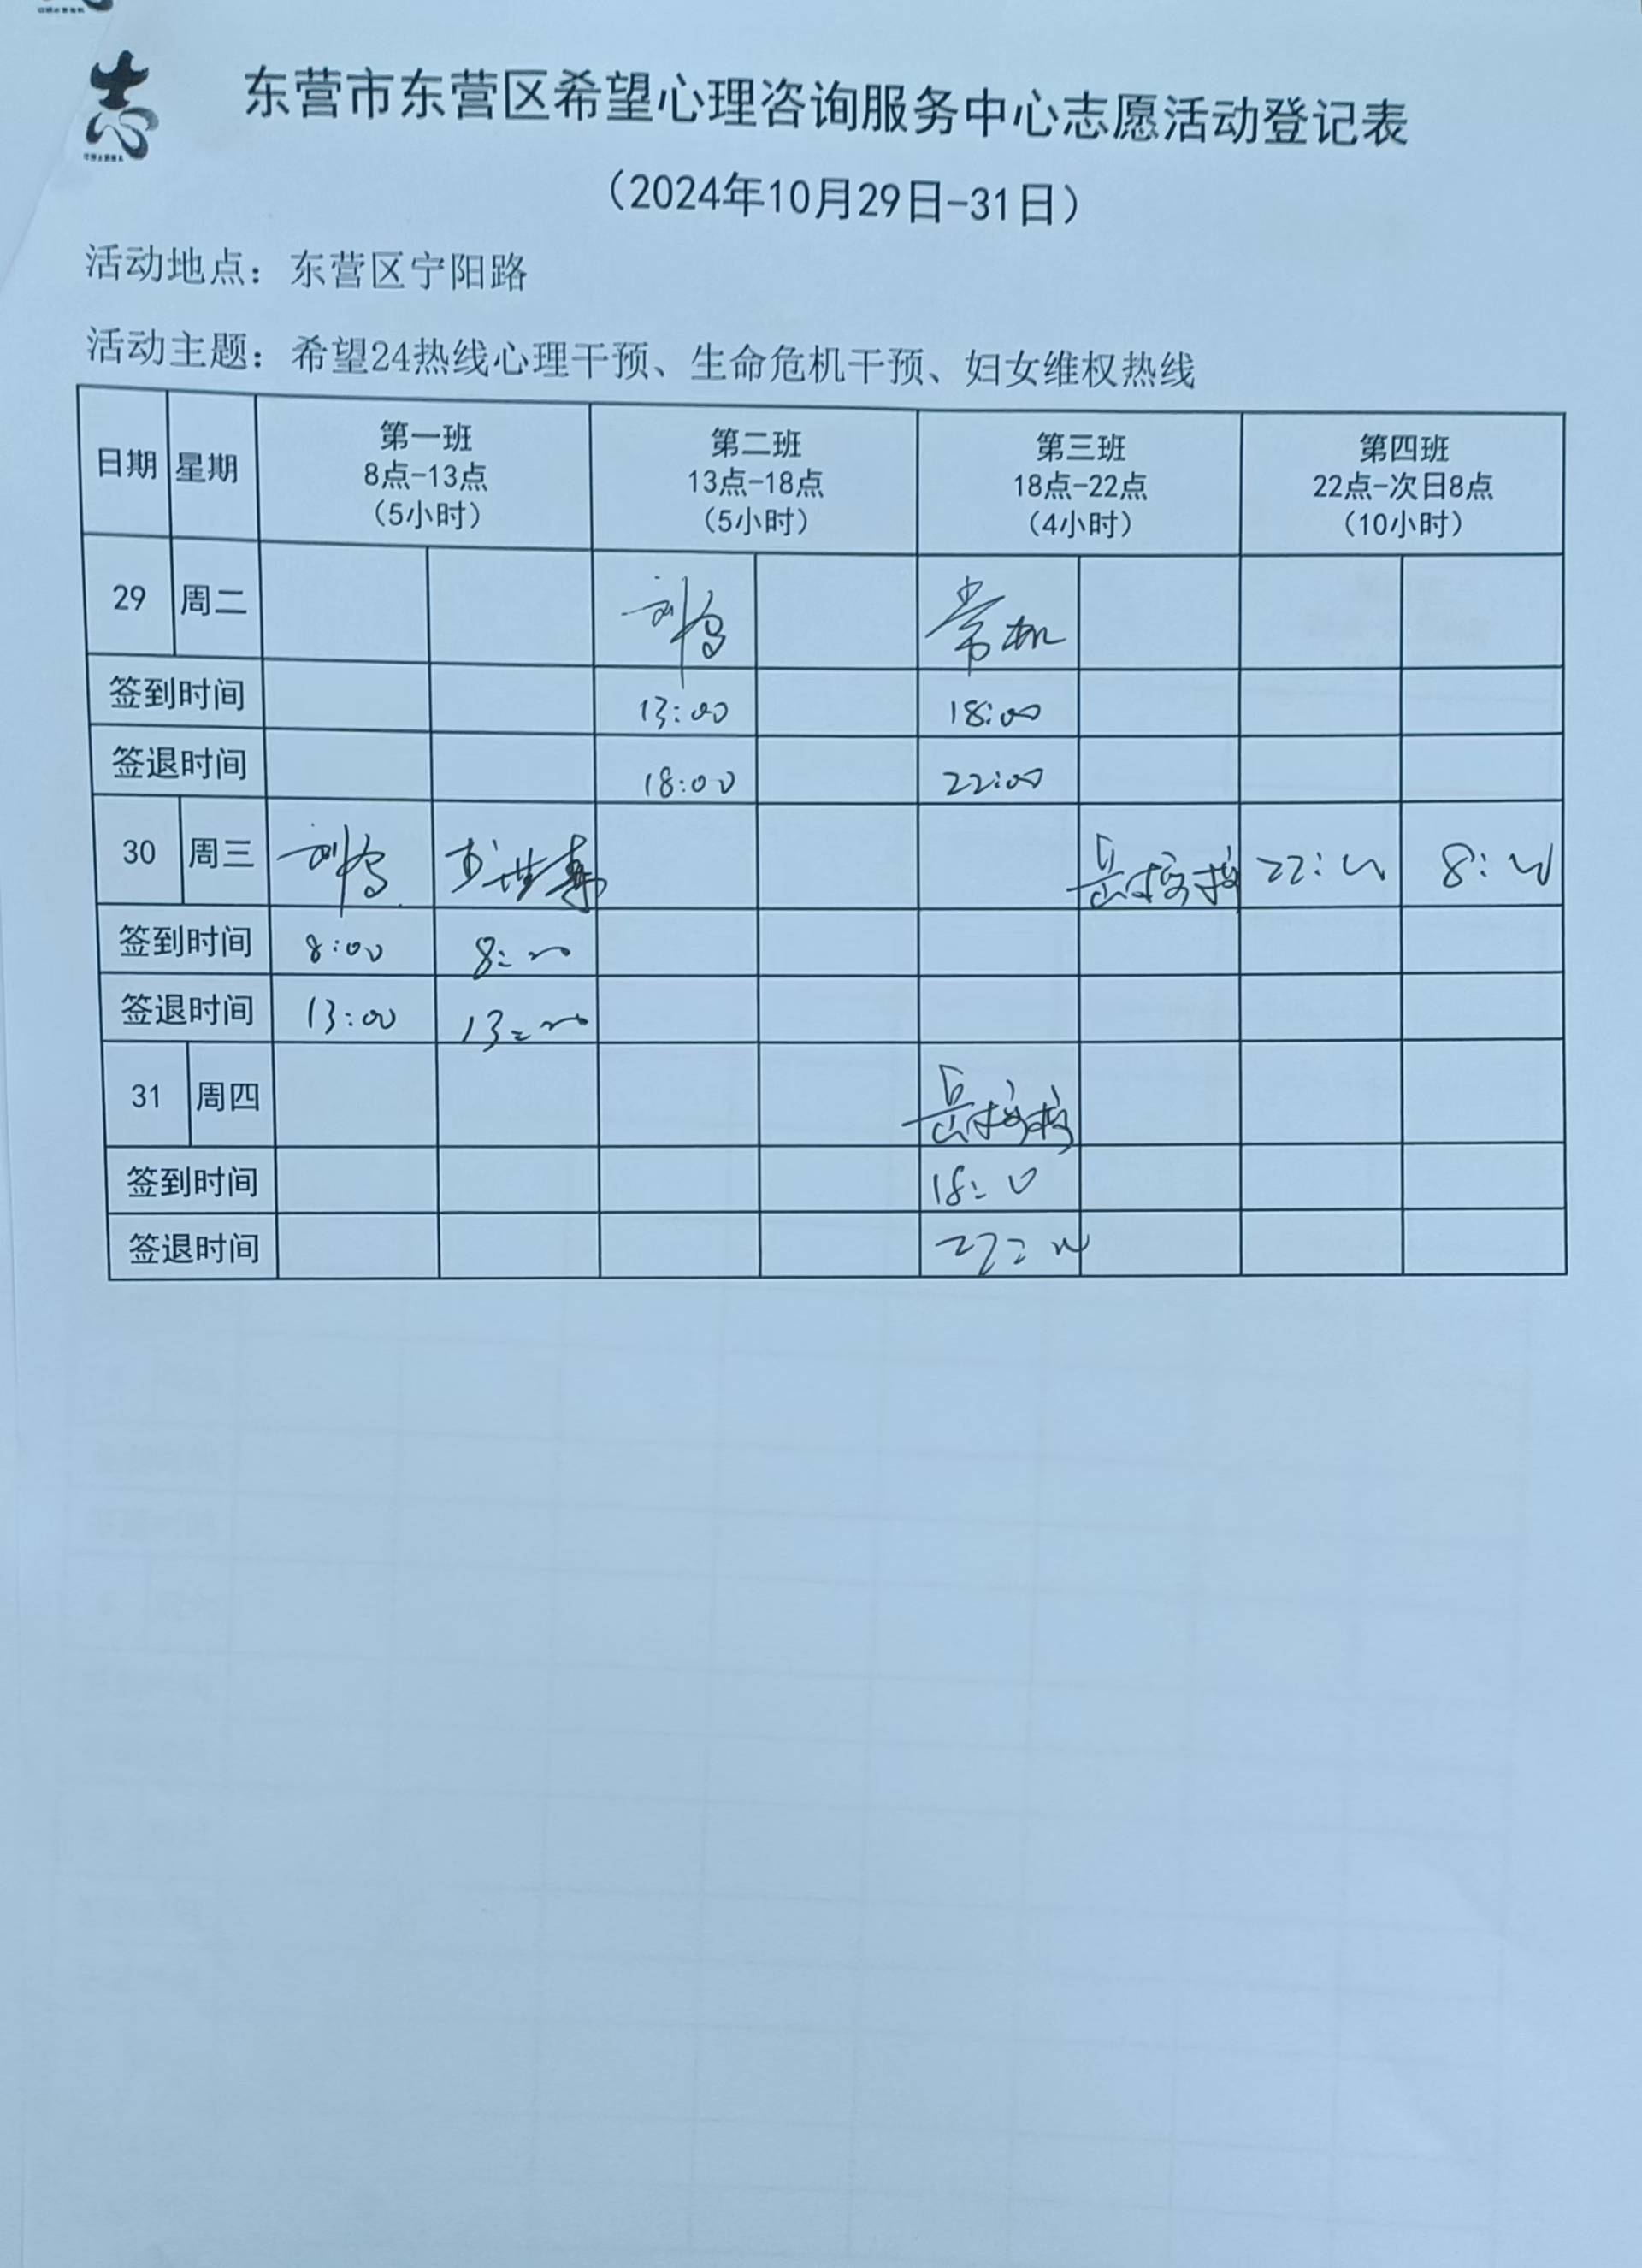 志
东营市东营区希望心理咨询服务中心志愿活动登记表
（2024年10月29日-31日）
活动地点：东营区宁阳路
活动主题：希望24热线心理干预、生命危机干预、妇女维权热线
日期 星期 第一班 8点-13点 （5小时） 第二班 13点-18点 （5小时） 第三班 18点-22点 （4小时） 第四班 22点-次日8点 （10小时）
29 周二
签到时间 13:00 18:00
签退时间 18:00 22:00
30 周三 22:00 8:00
签到时间 8:00 8:00
签退时间 13:00 13:00
31 周四
签到时间 18:00
签退时间 22:00